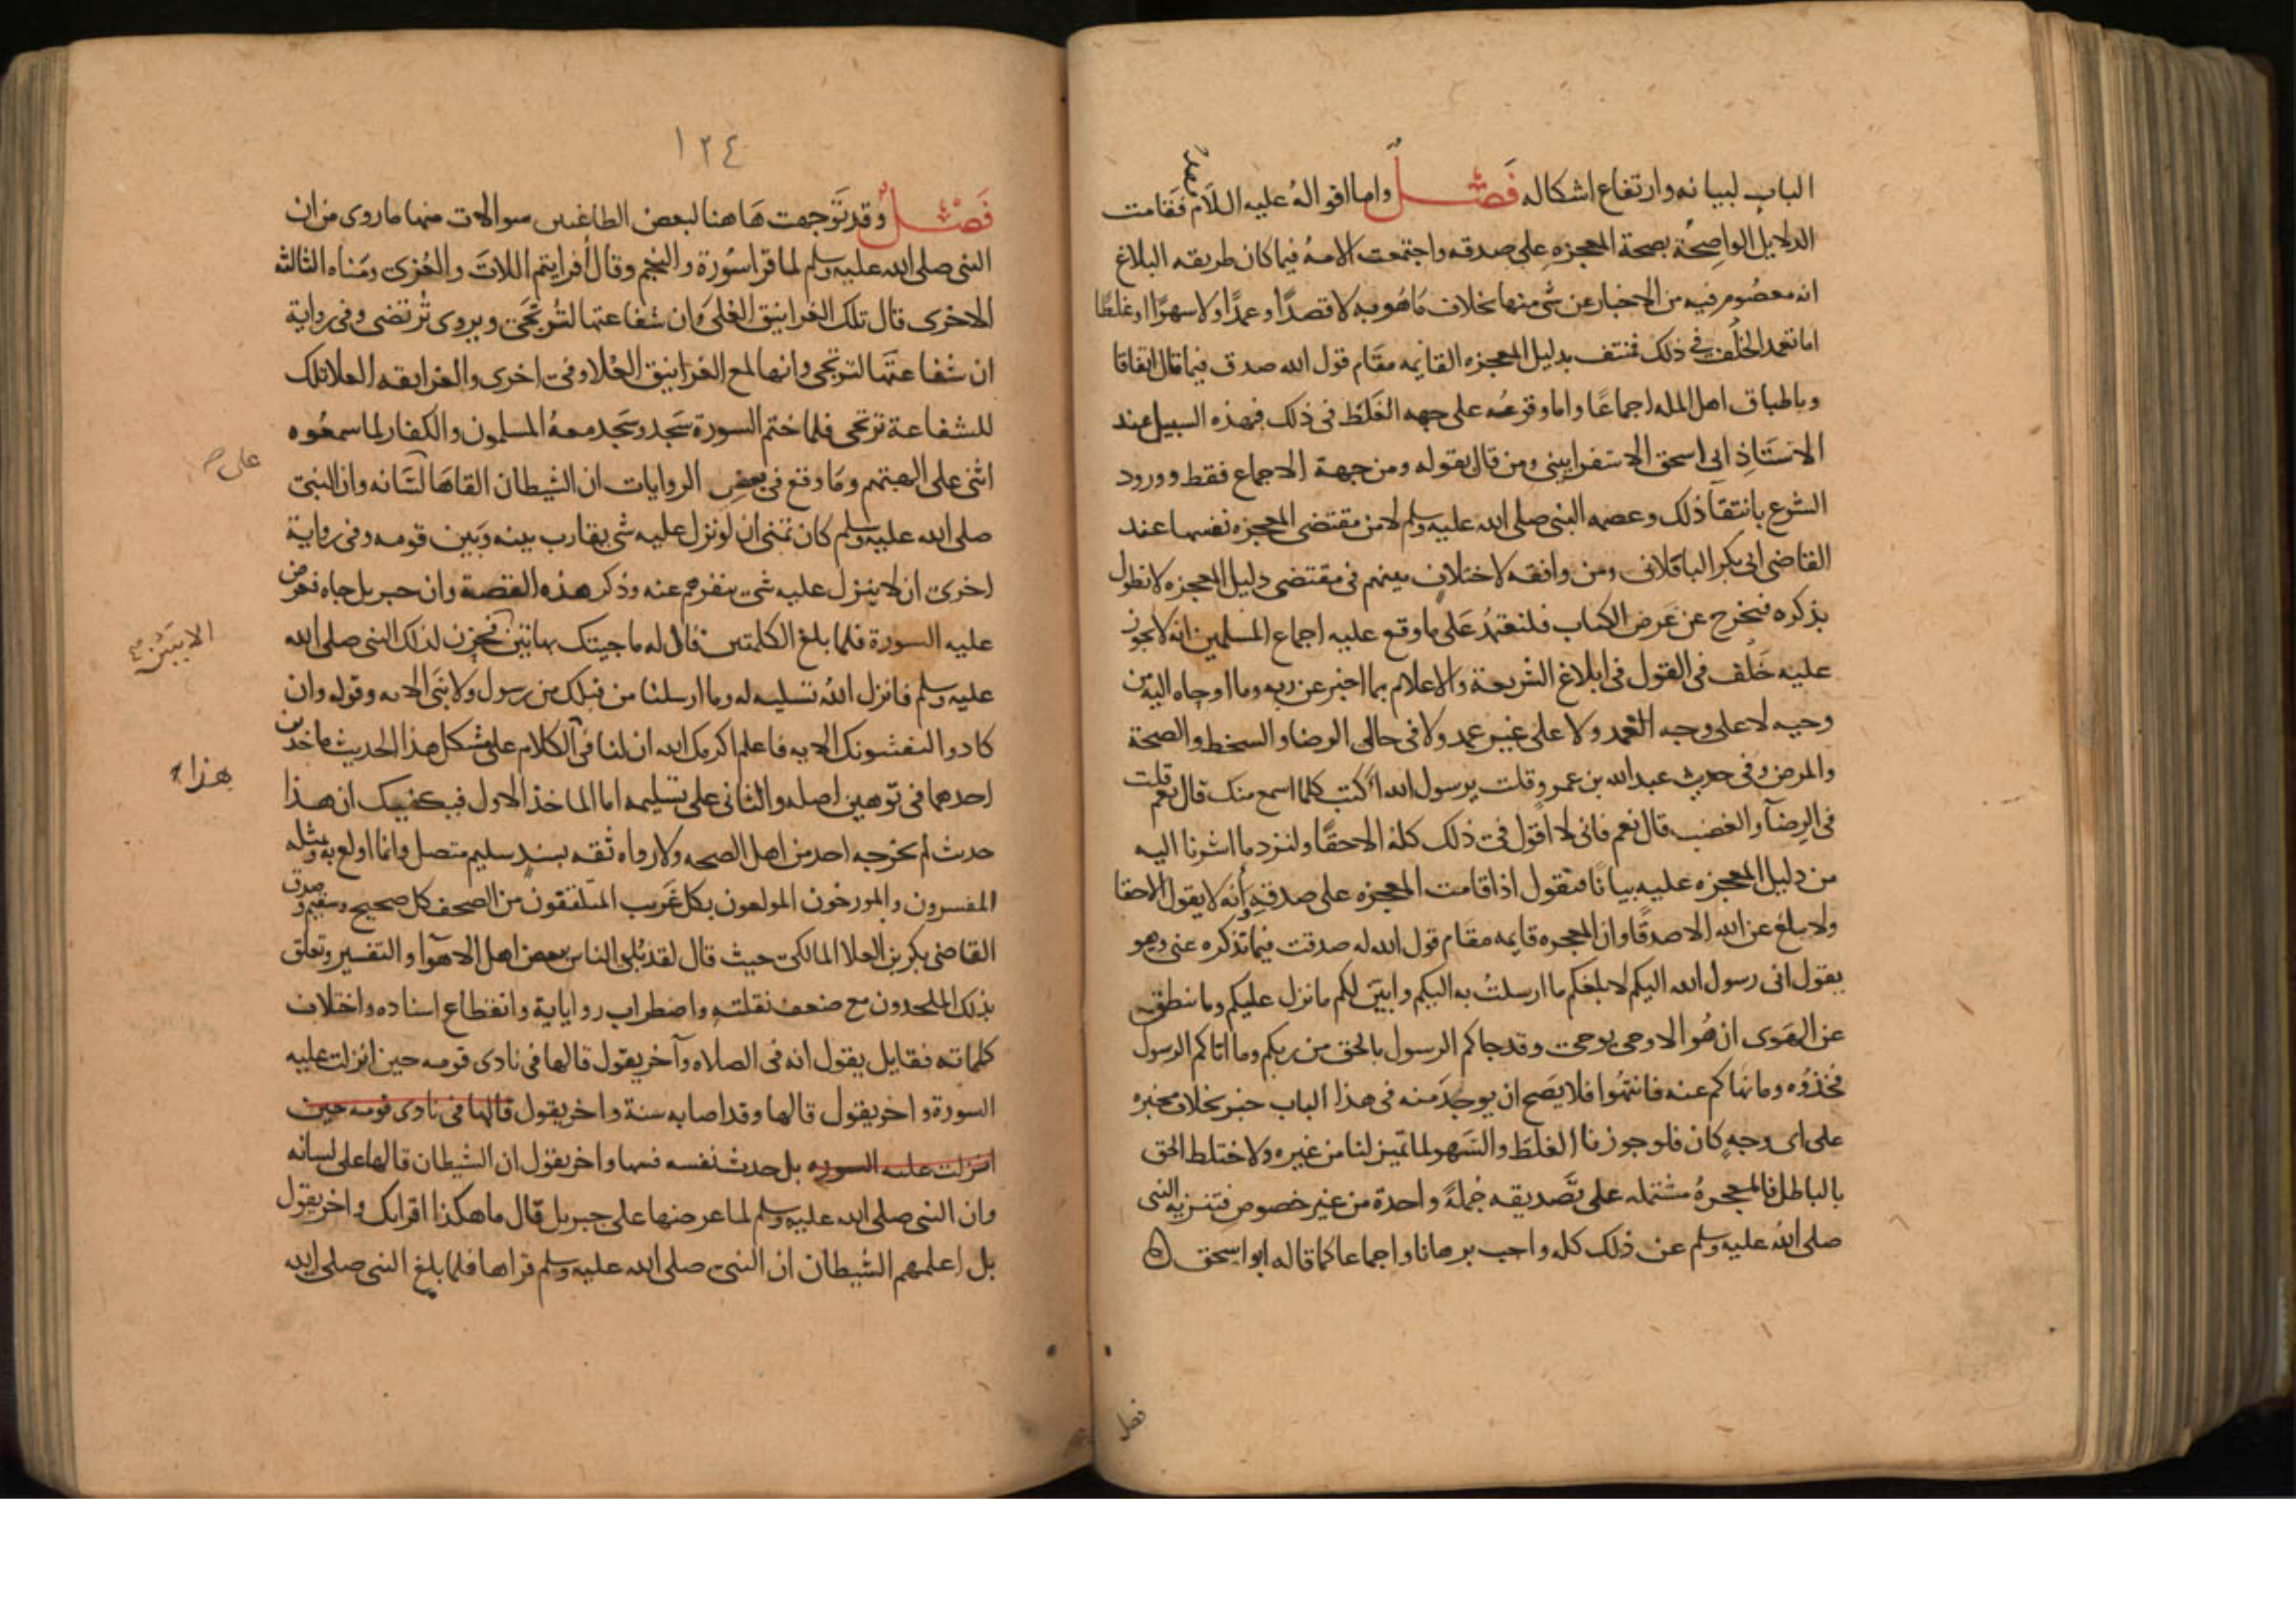 الباب لبيانه وارتفاع اشكاله فصل واما اقواله عليه السلام فقد قامت
الدلايل الواضحة بصحة المعجزه على صدقه واجتمعت الامه فيما كان طريقه البلاغ
انه معصوم فيه من الاخبار عن شي منها بخلاف ما هو به لا قصدا وعمدا ولا سهوا او غلطا
اما تعمد الخلف في ذلك فمنتف بدليل المعجزه القايمه مقام قول الله صدق فيما قال اتفاقا
وباطباق اهل المله اجماعا واما وقوعه على جهه الغلط في ذلك فبهذه السبيل عند
الاستاذ ابي اسحق الاسفرايني ومن قال بقوله ومن جهة الاجماع فقط وورود
الشرع بانتفا ذلك وعصمه النبي صلى الله عليه وسلم لا من مقتضى المعجزه نفسها عند
القاضي ابي بكر الباقلاني ومن وافقه لاختلاف بينهم في مقتضى دليل المعجزه لا نطول
بذكره فنخرج عن غرض الكتاب فلنعتمد على ما وقع عليه اجماع المسلمين انه لا يجوز
عليه خلف في القول في ابلاغ الشريعة والاعلام بما اخبر عن ربه وما اوحاه اليه من
وحيه لا على وجه العمد ولا على غير عمد ولا في حالي الرضا والسخط والصحة
والمرض وفي حديث عبد الله بن عمرو قلت يرسول الله ااكتب كلما اسمع منك قال نعم قلت
في الرضآ والغضب قال نعم فاني لا اقول في ذلك كله الا حقا ولنزد ما اشرنا اليه
من دليل المعجزه عليه بيانا فنقول اذا قامت المعجزه على صدقه وانه لا يقول الا حقا
ولا يبلغ عن الله الا صدقا وان المعجزه قايمه مقام قول الله له صدقت فيما تذكره عني وهو
يقول اني رسول الله اليكم لابلغكم ما ارسلت به اليكم وابين لكم ما نزل عليكم وما ينطق
عن الهوى ان هو الا وحي يوحى وقد جاكم الرسول بالحق من ربكم وما اتاكم الرسول
فخذوه وما نهاكم عنه فانتهوا فلا يصح ان يوجد منه في هذا الباب خبر بخلاف مخبره
على اي وجه كان فلو جوزنا الغلط والسهو لما تميز لنا من غيره ولاختلط الحق
بالباطل فالمعجزة مشتمله على تصديقه جملة واحدة من غير خصوص فتنزيه النبي
صلى الله عليه وسلم عن ذلك كله واجب برهانا واجماعا كما قاله ابو اسحق ه
فصل
١٢٤
فصل وقد توجهت هاهنا لبعض الطاغين سوالات منها ما روى من ان
النبي صلى الله عليه وسلم لما قرا سورة والنجم وقال أفرايتم اللات والعزى ومناه الثالثة
الاخرى قال تلك الغرانيق العلى وان شفاعتها لترتجى ويروى ترتضى وفي رواية
ان شفاعتها لترتجى وانها لمع الغرانيق العلا وفي اخرى والغرانقه العلا تلك
للشفاعة ترتجى فلما ختم السورة سجد وسجد معه المسلمون والكفار لما سمعوه
اثنى على الهتهم وما وقع في بعض الروايات ان الشيطان القاها لسانه وان النبي
على صح
صلى الله عليه وسلم كان تمنى ان لو نزل عليه شي يقارب بينه وبين قومه وفي رواية
اخرى ان لا ينزل عليه شي ينفرهم عنه وذكر هذه القصة وان جبريل جاه فعرض
عليه السورة فلما بلغ الكلمتين قال له ما جيتك بهاتين فحزن لذلك النبي صلى الله
عليه وسلم فانزل الله تسليه له وما ارسلنا من قبلك من رسول ولا نبي الايه وقوله وان
كادوا ليفتنونك الايه فاعلم اكرمك الله ان لنا في الكلام على مشكل هذا الحديث ماخذين
احدهما في توهين اصله والثاني على تسليمه اما الماخذ الاول فيكفيك ان هذا
هذا
حديث لم يخرجه احد من اهل الصحه ولا رواه ثقه بسند سليم متصل وانما اولع به وبمثله
المفسرون والمورخون المولعون بكل غريب المتلقفون من الصحف كل صحيح وسقيم وصدق
القاضي بكر بن العلا المالكي حيث قال لقد بلي الناس ببعض اهل الاهوآ والتفسير وتعلق
بذلك الملحدون مع ضعف نقلته واضطراب رواياته وانقطاع اسناده واختلاف
كلماته فقايل يقول انه في الصلاه وآخر يقول قالها في نادي قومه حين انزلت عليه
السورة واخر يقول قالها وقد اصابه سنة واخر يقول قالها في نادى قومه حين
انزلت عليه السوره بل حدث نفسه فسها واخر يقول ان الشيطان قالها على لسانه
وان النبي صلى الله عليه وسلم لما عرضها على جبريل قال ما هكذا اقراتك واخر يقول
بل اعلمهم الشيطان ان النبي صلى الله عليه وسلم قراها فلما بلغ النبي صلى الله